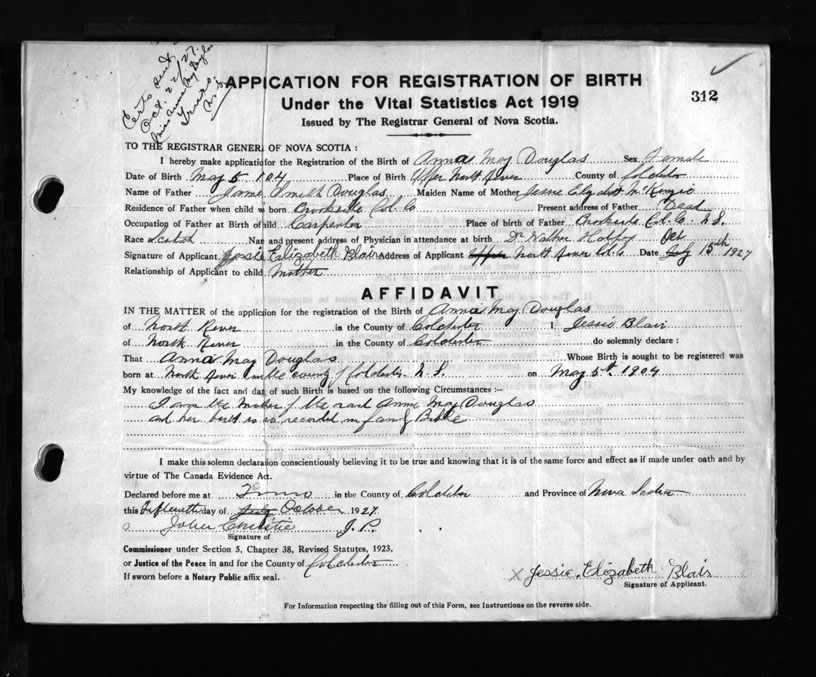 Certs sent
Oct. 22/27.
Miss Anna May Douglas
Truro.
N.S.
APPLICATION FOR REGISTRATION OF BIRTH
312
Under the Vital Statistics Act 1919
Issued by The Registrar General of Nova Scotia.
TO THE REGISTRAR GENERAL OF NOVA SCOTIA:
I hereby make application for the Registration of the Birth of Anna May Douglas Sex Female
Date of Birth May 5 1904 Place of Birth Upper North River County of Colchester
Name of Father James Smith Douglas Maiden Name of Mother Jessie Elizabeth McKenzie
Residence of Father when child was born Crookside Col. Co Present address of Father Dead
Occupation of Father at Birth of child Carpenter Place of birth of Father Crookside Col. Co. N.S.
Race Scotish Name and present address of Physician in attendance at birth Dr Walker Halifax
Signature of Applicant Jessie Elizabeth Blair Address of Applicant Upper North River Col. Co Date July Oct 15th 1927
Relationship of Applicant to child Mother
AFFIDAVIT
IN THE MATTER of the application for the registration of the Birth of Anna May Douglas
of North River in the County of Colchester I, Jessie Blair
of North River in the County of Colchester do solemnly declare:
That Anna May Douglas Whose Birth is sought to be registered was
born at North River in the county of Colchester N.S. on May 5th 1904
My knowledge of the fact and date of such Birth is based on the following Circumstances:—
I am the Mother of the said Annie May Douglas
and her birth is so recorded in family Bible
I make this solemn declaration conscientiously believing it to be true and knowing that it is of the same force and effect as if made under oath and by
virtue of The Canada Evidence Act.
Declared before me at Truro in the County of Colchester and Province of Nova Scotia
this fifteenth day of July October 1927
John Christie J.P.
Signature of
Commissioner under Section 5, Chapter 38, Revised Statutes, 1923,
or Justice of the Peace in and for the County of Colchester
If sworn before a Notary Public affix seal.
x Jessie Elizabeth Blair
Signature of Applicant.
For Information respecting the filling out of this Form, see Instructions on the reverse side.